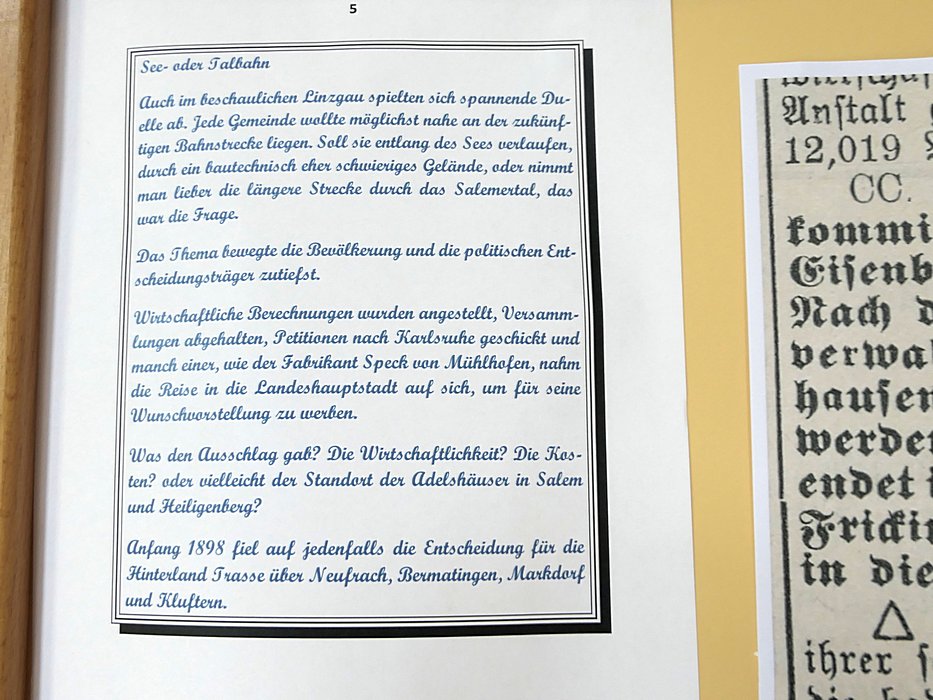 5
See- oder Talbahn
Auch im beschaulichen Linzgau spielten sich spannende Du-
elle ab. Jede Gemeinde wollte möglichst nahe an der zukünf-
tigen Bahnstrecke liegen. Soll sie entlang des Sees verlaufen,
durch ein bautechnisch eher schwieriges Gelände, oder nimmt
man lieber die längere Strecke durch das Salemertal, das
war die Frage.
Das Thema bewegte die Bevölkerung und die politischen Ent-
scheidungsträger zutiefst.
Wirtschaftliche Berechnungen wurden angestellt, Versamm-
lungen abgehalten, Petitionen nach Karlsruhe geschickt und
manch einer, wie der Fabrikant Speck von Mühlhofen, nahm
die Reise in die Landeshauptstadt auf sich, um für seine
Wunschvorstellung zu werben.
Was den Ausschlag gab? Die Wirtschaftlichkeit? Die Kos-
ten? oder vielleicht der Standort der Adelshäuser in Salem
und Heiligenberg?
Anfang 1898 fiel auf jedenfalls die Entscheidung für die
Hinterland Trasse über Neufrach, Bermatingen, Markdorf
und Kluftern.
Anstalt
12,019
CC.
kommi
Eisenb
Nach d
verwal
hausen
werden
endet i
Frickin
in die
ihrer